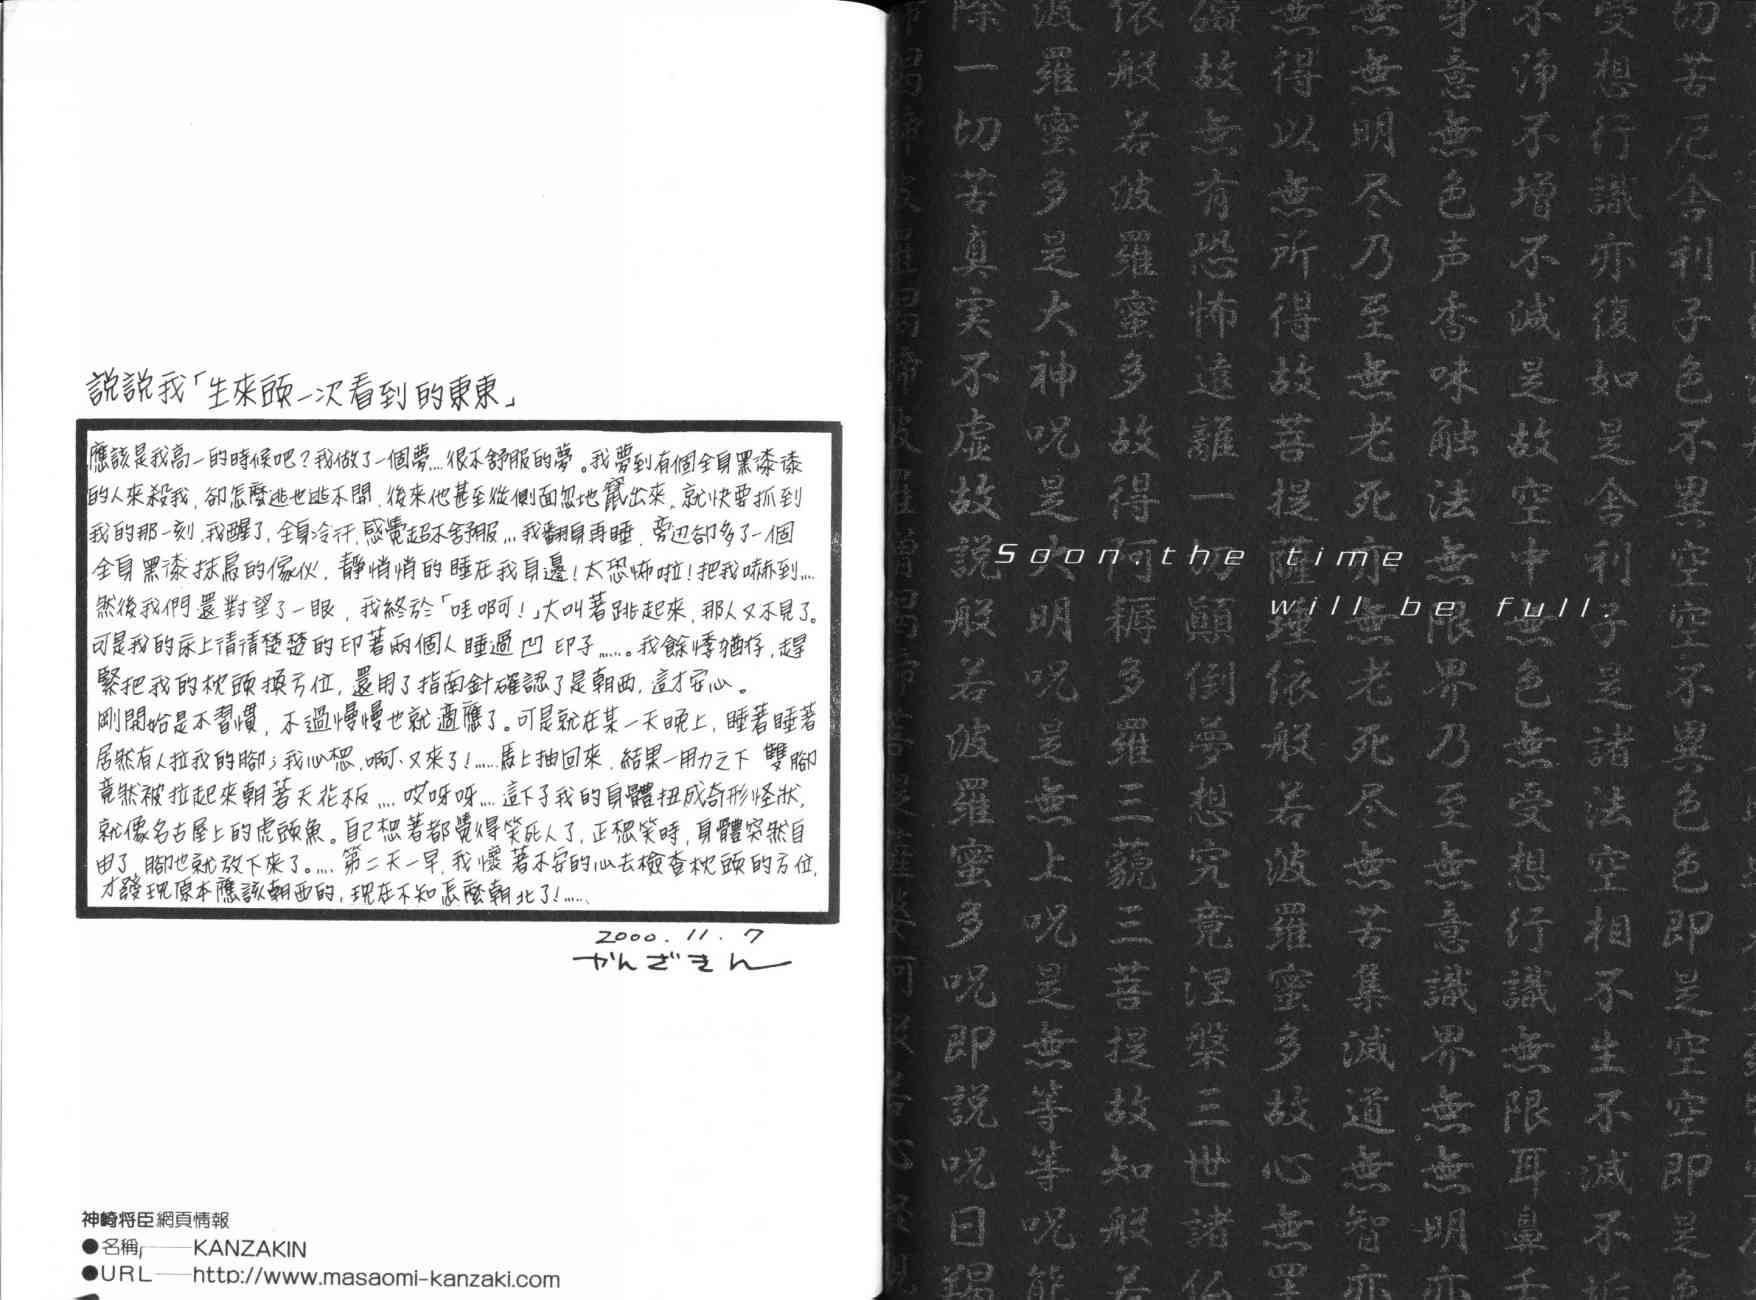 說說我「生來頭一次看到的東東」
應該是我高一的時候吧？我做了一個夢....很不舒服的夢。我夢到有個全身黑漆漆
的人來殺我，卻怎麼逃也逃不開，後來他甚至從側面忽地竄出來，就快要抓到
我的那一刻，我醒了，全身冷汗，感覺超不舒服...我翻身再睡，旁边卻多了一個
全身黑漆抹烏的傢伙，靜悄悄的睡在我身邊！太恐怖啦！把我嚇到....
然後我們還對望了一眼，我終於「哇啊可！」大叫著跳起來，那人又不見了。
可是我的床上清清楚楚的印著兩個人睡過凹印子......。我餘悸猶存，趕
緊把我的枕頭換方位，還用了指南針確認了是朝西，這才安心。
剛開始是不習慣，不過慢慢也就適應了。可是就在某一天晚上，睡著睡著
居然有人拉我的腳；我心想，啊、又來了！......馬上抽回來，結果一用力之下雙腳
竟然被拉起來朝著天花板....哎呀呀....這下了我的身體扭成奇形怪狀，
就像名古屋上的虎頭魚。自己想著都覺得笑死人了，正想笑時，身體突然自
由了，腳也就放下來了。....第二天一早，我懷著不安的心去檢查枕頭的方位，
才發現原本應該朝西的，現在不知怎麼朝北了！......
2000.11.7
かんざきん
神崎将臣網頁情報
●名稱──KANZAKIN
●URL──http://www.masaomi-kanzaki.com
Soon.the time
will be full.
切苦厄舎利子色不異空空不異色色即是空空即是色
受想行識亦復如是舎利子是諸法空相不生不滅不垢
不浄不増不減是故空中無色無受想行識無限耳鼻舌
身意無色声香味触法無限界乃至無意識界無無明亦
無無明尽乃至無老死亦無老死尽無苦集滅道無智亦
無得以無所得故菩提薩埵依般若波羅蜜多故心無罣
礙故無有恐怖遠離一切顛倒夢想究竟涅槃三世諸仏
依般若波羅蜜多故得阿耨多羅三藐三菩提故知般若
波羅蜜多是大神呪是大明呪是無上呪是無等等呪能
除一切苦真実不虚故説般若波羅蜜多呪即説呪曰羯